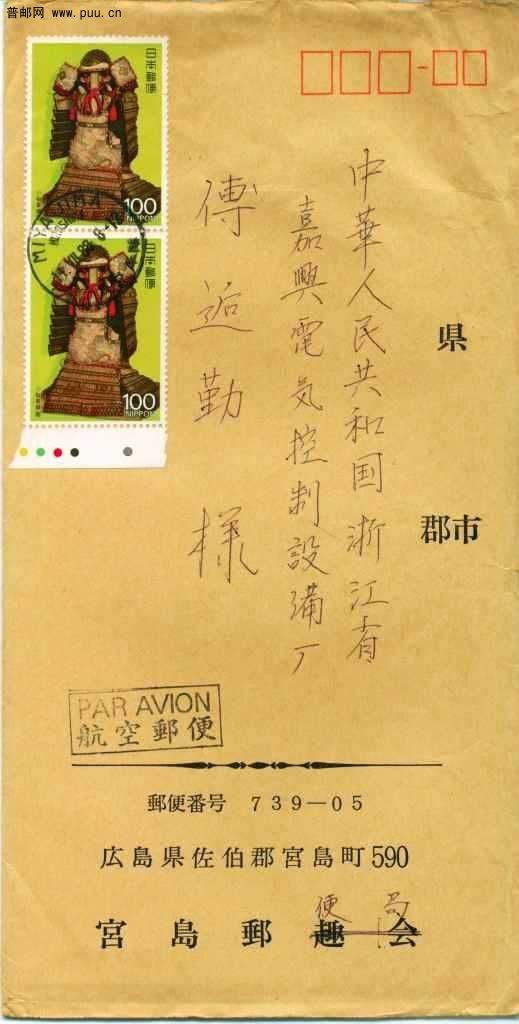 普邮网 www.puu.cn
日本郵便
100
NIPPON
日本郵便
100
NIPPON
中華人民共和国浙江省
嘉興電気控制設備厂
傅逅勤様
県
郡市
PAR AVION
航空郵便
郵便番号 739-05
広島県佐伯郡宮島町590
便局
宮島郵趣会